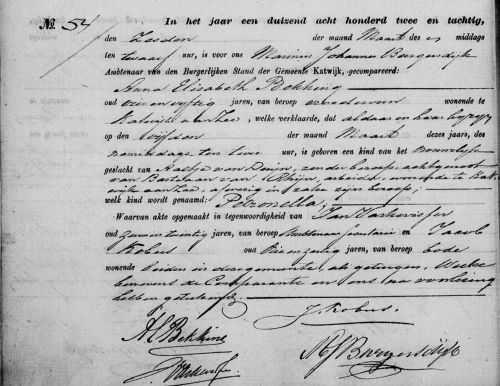 No. 54
In het jaar een duizend acht honderd twee en tachtig,
den zesden der maand Maart des middags
ten twaalf uur, is voor ons Marinus Johannes Bergersdijk
Ambtenaar van den Burgerlijken Stand der Gemeente Katwijk, gecompareerd:
Anna Elisabeth Bekking
oud jaren, van beroep vroedvrouw wonende te
Katwijk aan Zee, welke verklaarde, dat aldaar in haar bijzijn
op den vijfden der maand Maart dezes jaars, des
namiddags ten twee uur, is geboren een kind van het vrouwelijk
geslacht van Aaltje van Duijn, zonder beroep, echtgenoot
van van Rhijn, wonende te Kat
wijk aan Zee, afwezig in zake zijn beroep;
welk kind wordt genaamd: Petronella;
Waarvan akte opgemaakt in tegenwoordigheid van Jan
oud jaren, van beroep secretarie en Jacob
Kobus oud jaren, van beroep bode
wonende beiden in deze gemeente, als getuigen, Welke
benevens de Comparante en ons na voorlezing
hebben geteekend.
J. Kobus.
A E Bekking
MJ Bergersdijk